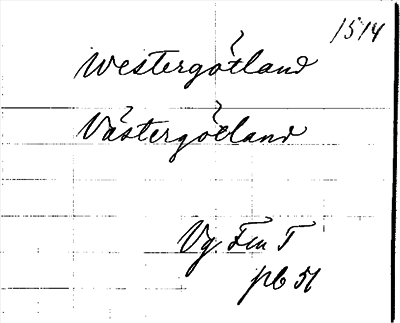 1514
Westergötland
Västergötland
Vg. Fra T
pb 51